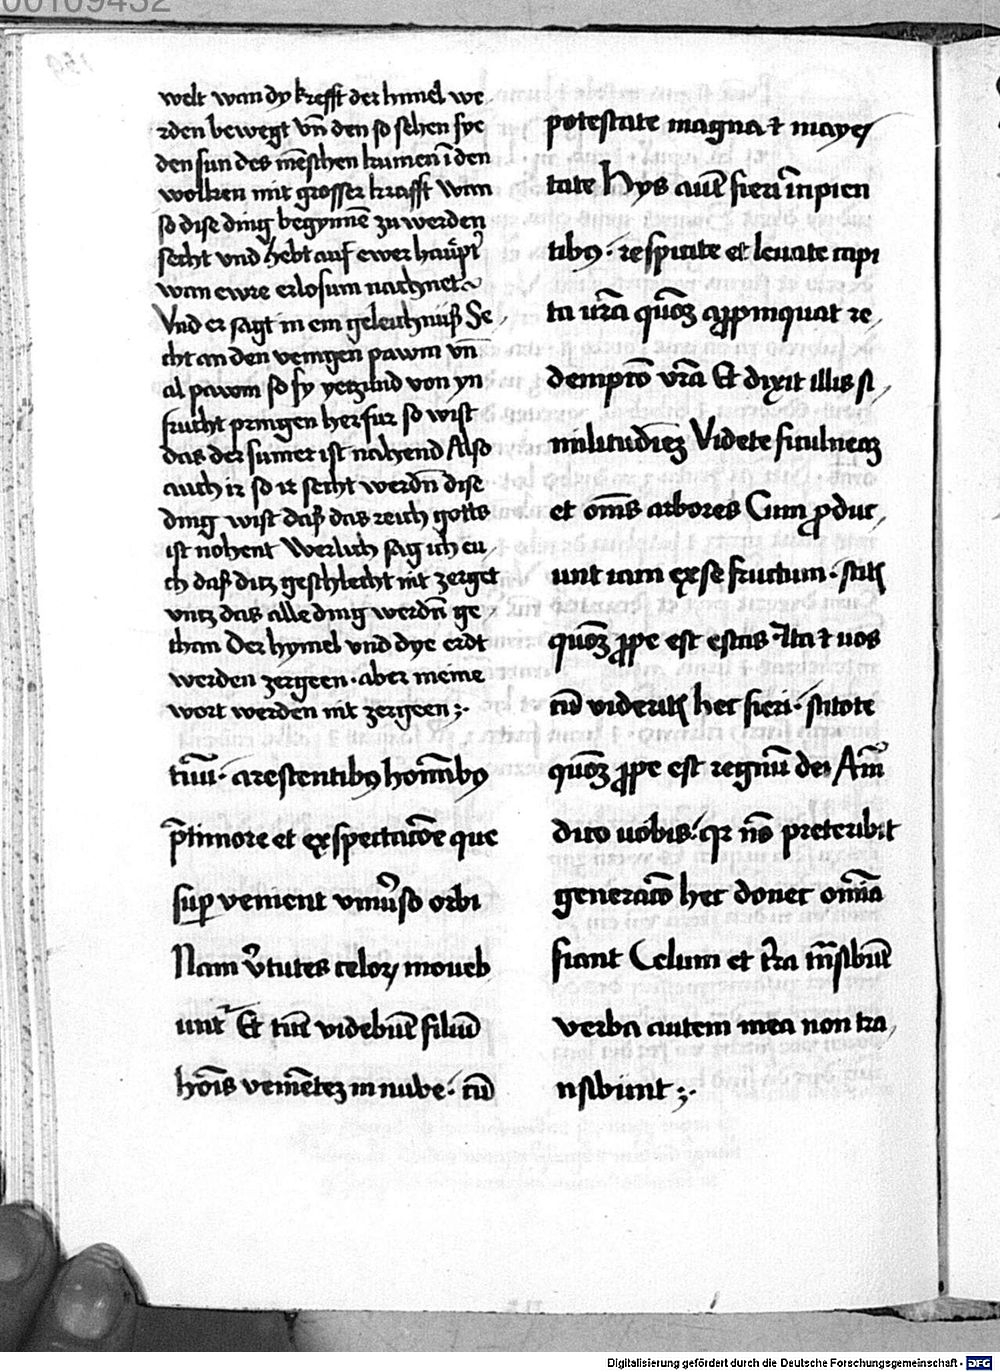 00109432
welt wan dy krefft der himel we
rden bewegt vn̄ den so sehen sye
den sun des mēschen kumen ī den
wolken mit grosser krafft Wan
so dise ding begynnē zu werden
secht vnd hebt auf ewer haupt
wan ewre erlosum nachnet
Vnd er sagt in ein geleichnüß Se
cht an den veingen pawm vn̄
al pawm so sy yetzund von yn
frucht pringen herfur so wist
das der sumer ist nahend Also
auch ir so ir secht werdn̄ dise
ding wist daß das reich gotts
ist nohent Werlich sag ich eu
ch daß ditz geschlecht nit zerget
vntz das alle ding werdn̄ ge
than Der hymel vnd dye erdt
werden zergeen · aber meine
wort werden nit zergeen ;·
tuū · arestentibꝯ homībꝯ
p̄ timore et exspectacōe que
suꝑ venient vniūso orbi
Nam v̄tutes celoꝝ moueb
unt̄ Et tūc videbūt filiū
hōis veniētez in nube · cū
potestate magna ⁊ mayes
tate Hys autē fierī īnpien
tibꝯ · respicite et leuate capi
ta ur̄a quō̄z apꝓpinquat re
dempto vr̄a Et dixit illis si
militudiēz Videte ficulneaz
et om̄s arbores Cum ꝓduc
unt iam ex se fructum · scitis
quō̄z ꝓpe est estas Ita ⁊ uos
cū videritis hec fieri · scitote
quō̄z ꝓpe est regnū dei Am̄
dico uobis · qꝛ nō preteribit
generacō hec donec om̄ia
fiant Celum et t̄ra tn̄sibūt
verba autem mea non tra
nsibunt ;·
Digitalisierung gefördert durch die Deutsche Forschungsgemeinschaft - DFG